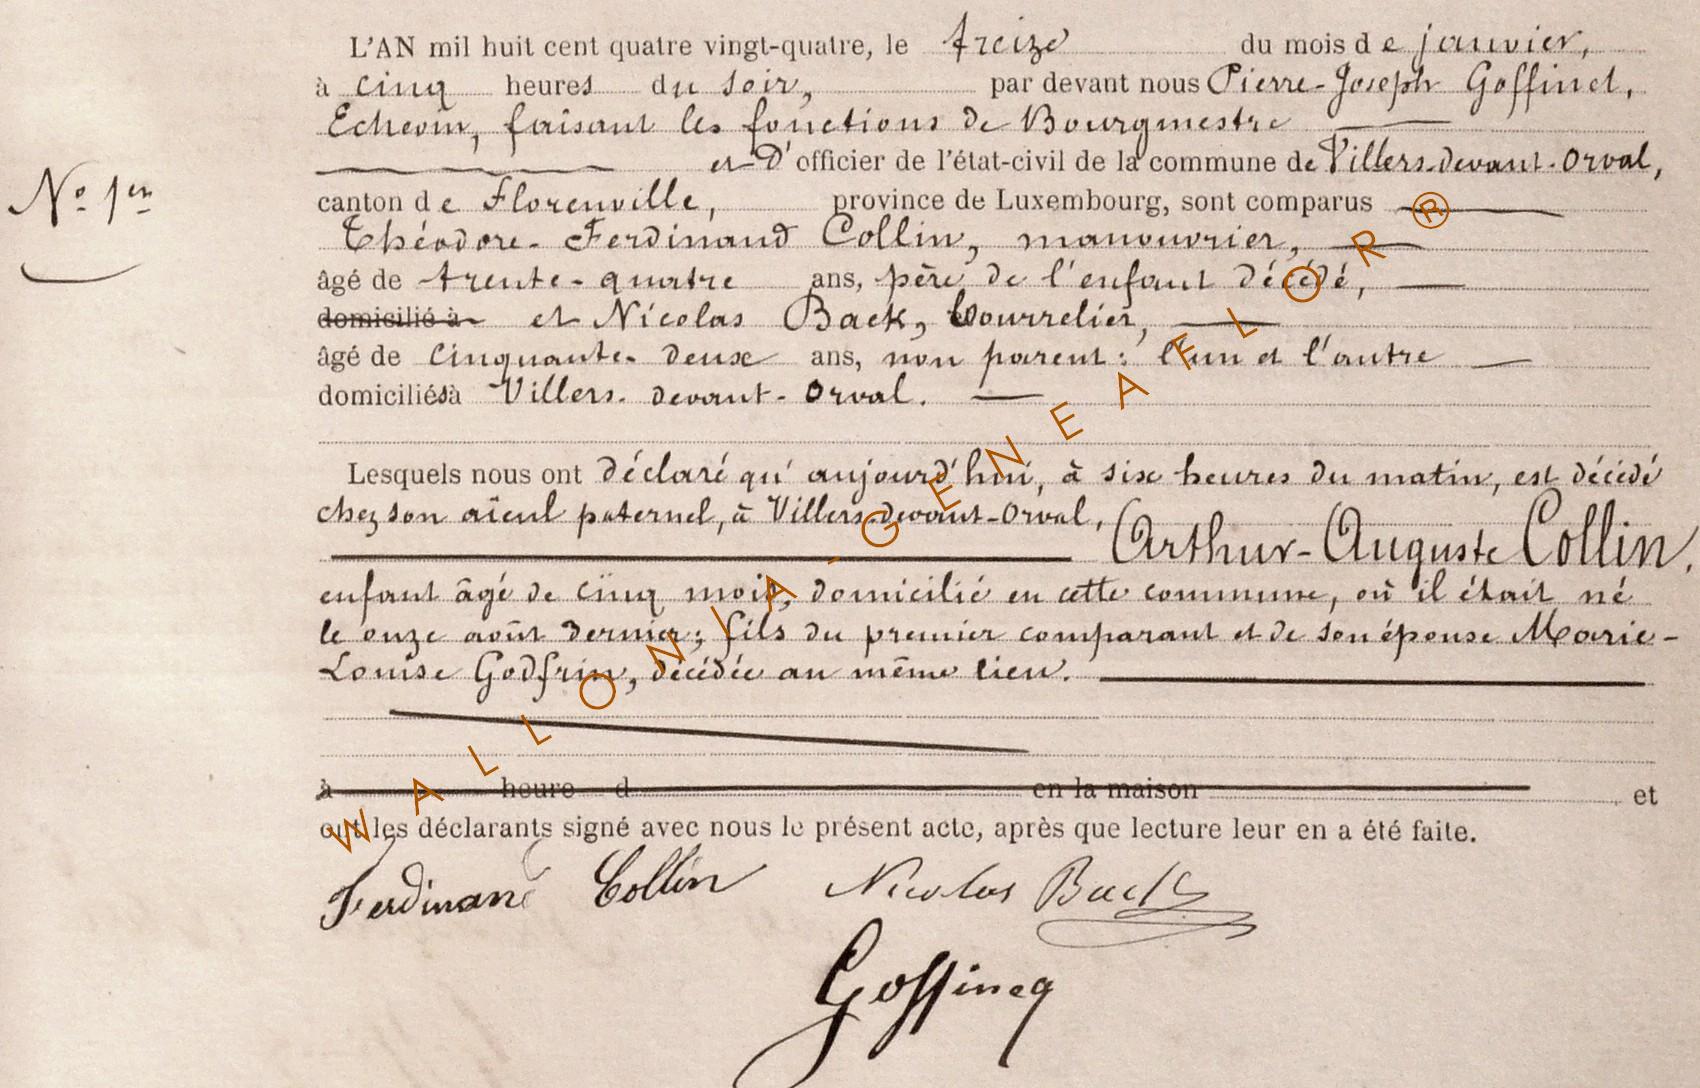 L'AN mil huit cent quatre vingt-quatre, le treize du mois de janvier,
à cinq heures du soir, par devant nous Pierre-Joseph Goffinet,
Echevin, faisant les fonctions de Bourgmestre
et D'officier de l'état-civil de la commune de Villers-devant-Orval,
N° 1er
canton de Florenville, province de Luxembourg, sont comparus
Théodore-Ferdinand Collin, manouvrier,
âgé de trente-quatre ans, père de l'enfant décédé,
domicilié à et Nicolas Back, Bourrelier,
âgé de cinquante-deux ans, non parent: l'un et l'autre
domiciliés à Villers-devant-Orval.
Lesquels nous ont déclaré qu'aujourd'hui, à six heures du matin, est décédé
chez son aïeul paternel, à Villers-devant-Orval,
Arthur-Auguste Collin.
enfant âgé de cinq mois, domicilié en cette commune, où il était né
le onze août dernier; fils du premier comparant et de son épouse Marie-
Louise Godfrin, décédée au même lieu.
à heure d en la maison et
ont les déclarants signé avec nous le présent acte, après que lecture leur en a été faite.
Ferdinand Collin Nicolas Back
Goffineq
WALLONIA-GENEAFLOR®